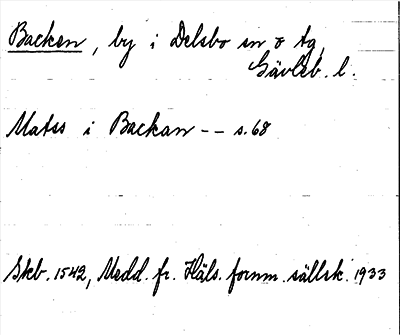 Backen, by i Delsbo sn o tg,
Gävleb. l.
Matss i Backan -- s. 68
Skb. 1542, Medd. fr. Häls. fornm. sällsk. 1933